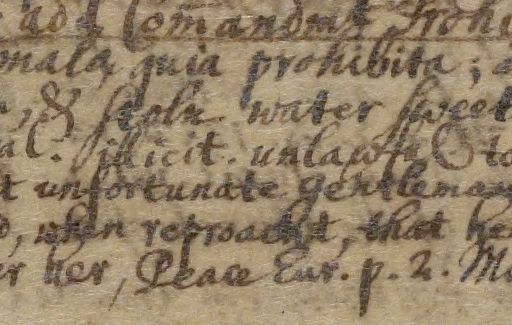 Comandmt Prohi
mala quia prohibita; a
& stoln water sweet
al. illicit. unlawful to
t unfortunate Gentleman
, when reproacht, that he
er her, Peace Eur. p. 2. M